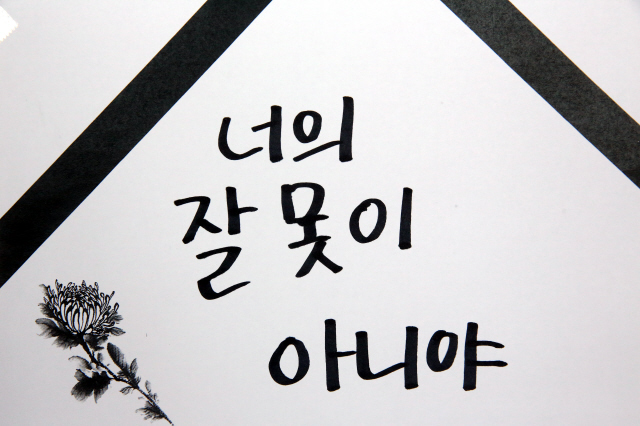 너의
잘못이
아니야